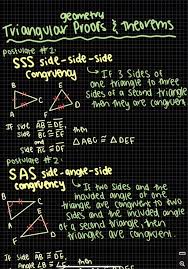 geometry
Triangular Proofs & Theorems
postulate #2:
SSS side-side-side
congruency
If 3 sides of
one triangle to three
sides of a second triangle
then they are congruent
B
C
A
E
D
F
If side AB ≅ DE
side BC ≅ EF
and side AC ≅ DF
then
△ABC ≅ △DEF
postulate #2:
SAS side-angle-side
congruency
If two sides and the
included angle of one
triangle are congruent to two
sides and the included angle
of a second triangle, then
triangles are congruent.
B
A
C
E
D
F
If side AB ≅ DE,
Angle ∠B ≅ ∠E